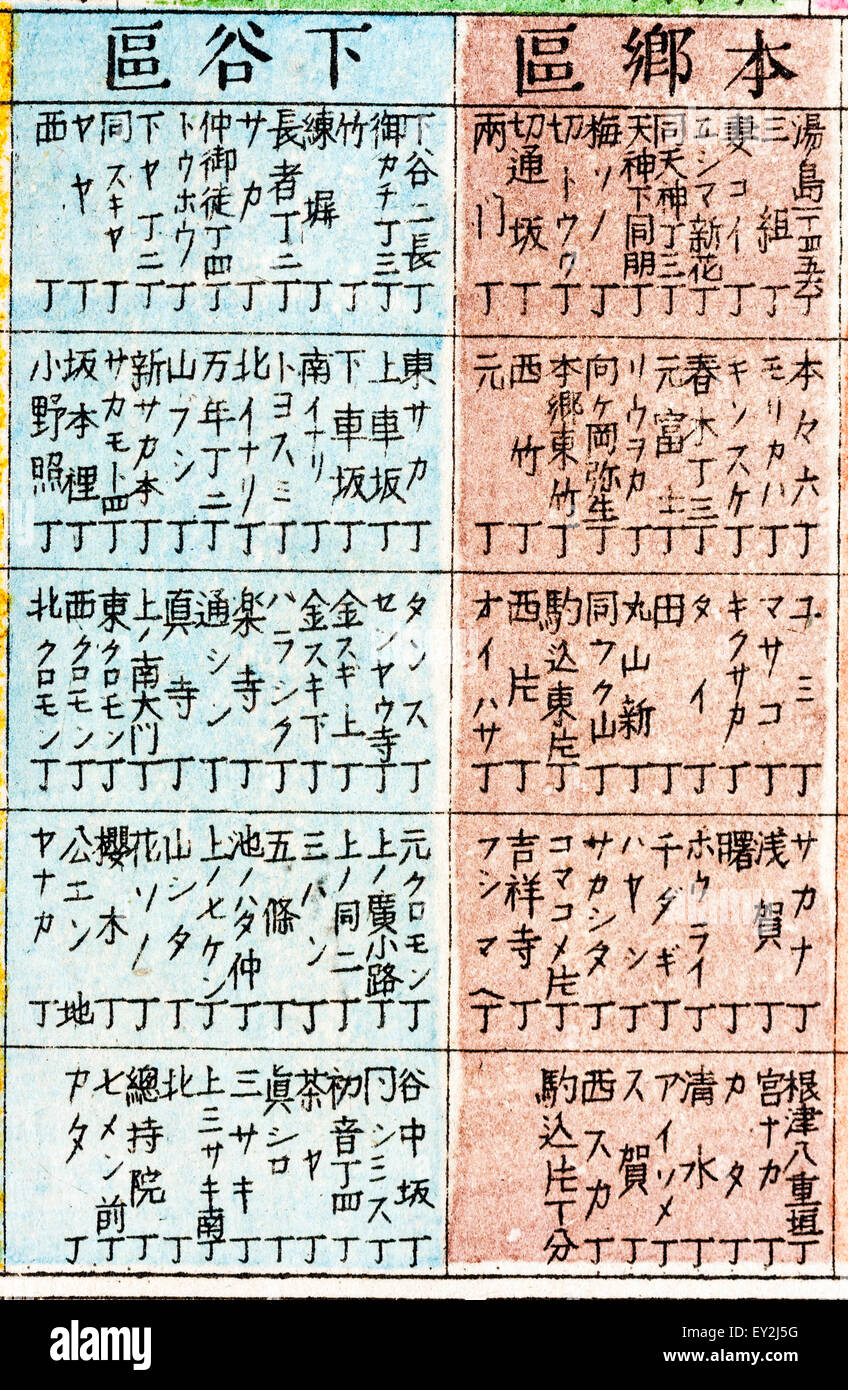 本鄉區
三組丁
妻コイ丁
ユシマ新花丁
同天神丁三丁
天神下同朋丁
梅ソノ丁
切通坂丁
兩門丁
本々六丁
モリカハ丁
キンスケ丁
春木丁三丁
元富士丁
リウヲカ丁
向ヶ岡弥生丁
本郷東竹丁
西竹丁
元丁
ユミ丁
マサコ丁
キクサカ丁
タイ丁
田丁
丸山新丁
同フク山丁
駒込東片丁
西片丁
オイハサ丁
サカナ丁
浅賀丁
曙丁
ホウライ丁
千ダギ丁
ハヤシ丁
サカシタ丁
コマコメ片丁
吉祥寺丁
フシマヘ丁
根津八重垣丁
宮ナカ丁
カタ丁
清水丁
アイソメ丁
ス賀丁
西スカ丁
駒込片丁分
下谷區
下谷二長丁
御カチ丁三丁
竹丁
練塀丁
長者丁二丁
サカ丁
仲御徒丁四丁
トウホウ丁
下ヤ丁二丁
同スキヤ丁
ヤヤ丁
西丁
東サカ丁
上車坂丁
下車坂丁
南イナリ丁
トヨスミ丁
北イナリ丁
万年丁二丁
山フシ丁
新サカ本丁
サカモト四丁
坂本裡丁
小野照丁
タンス丁
センヤウ寺丁
金スキ上丁
金スキ下丁
ハラシク丁
楽寺丁
通シン丁
真寺丁
上ノ南大門丁
東クロモン丁
西クロモン丁
北クロモン丁
元クロモン丁
上ノ廣小路丁
上ノ同二丁
三ハシ丁
五條丁
池ノハタ仲丁
上ノ七ケン丁
山シタ丁
花ソノ丁
櫻木丁
公エン地
ヤナカ丁
谷中坂丁
同シミス丁
初音丁四丁
茶ヤ丁
眞シロ丁
三サキ丁
上三サキ南丁
北丁
總持院丁
七メン前丁
アタ丁
alamy
Image ID: EY2J5G
www.alamy.com